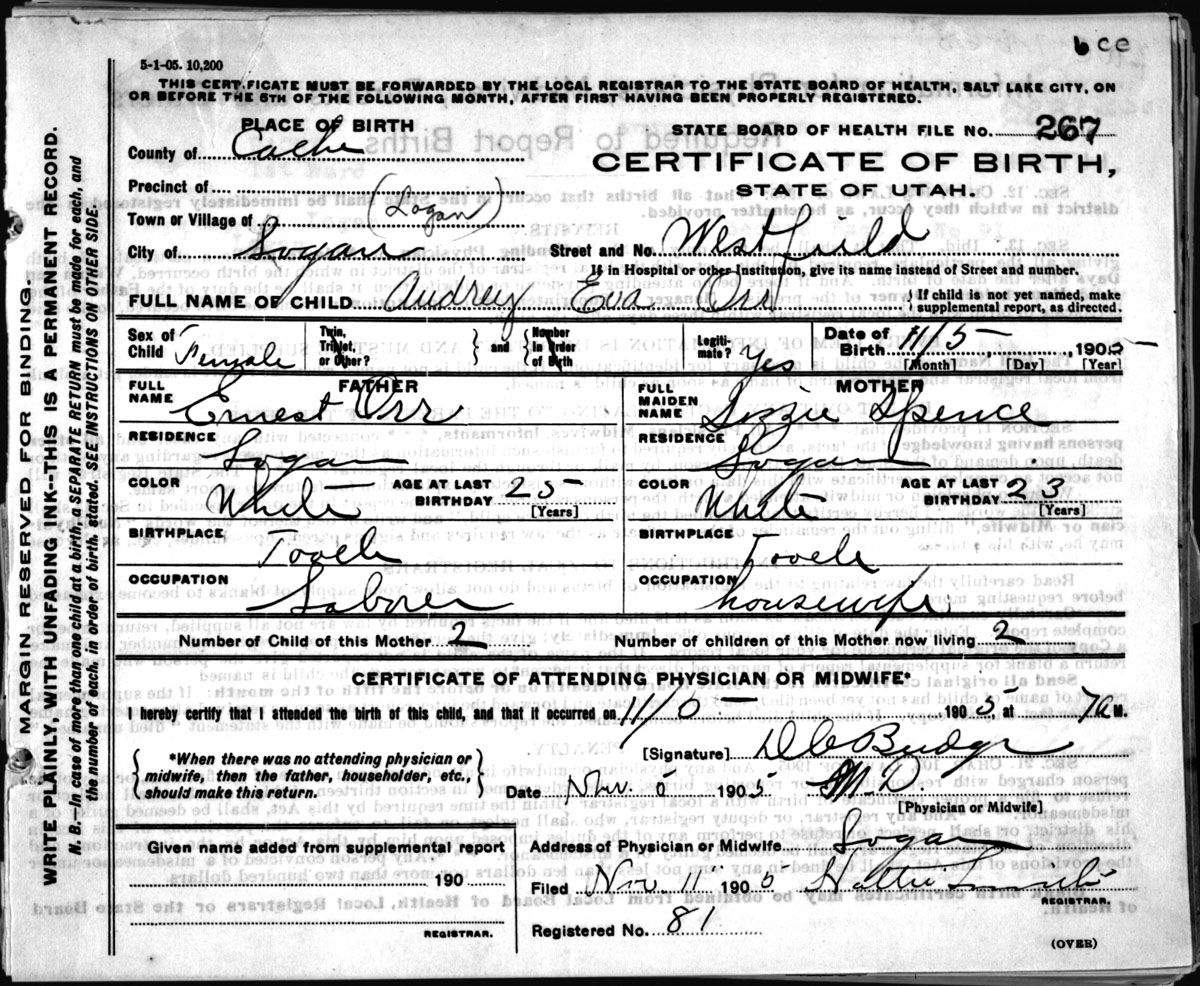 b ce
5-1-05. 10,200
THIS CERT.FICATE MUST BE FORWARDED BY THE LOCAL REGISTRAR TO THE STATE BOARD OF HEALTH, SALT LAKE CITY, ON
OR BEFORE THE 5TH OF THE FOLLOWING MONTH, AFTER FIRST HAVING BEEN PROPERLY REGISTERED.
PLACE OF BIRTH
STATE BOARD OF HEALTH FILE No. 267
County of Cache
CERTIFICATE OF BIRTH,
STATE OF UTAH.
Precinct of
Town or Village of (Logan)
City of Logan Street and No. Westfield
If in Hospital or other Institution, give its name instead of Street and number.
FULL NAME OF CHILD Audrey Eva Orr { If child is not yet named, make supplemental report, as directed.
Sex of Child Female Twin, Triplet, or Other? } and { Number in Order of Birth Legitimate? Yes Date of Birth 11/5 1905
[Month] [Day] [Year]
FULL NAME FATHER Ernest Orr
RESIDENCE Logan
COLOR White AGE AT LAST BIRTHDAY 25 [Years]
BIRTHPLACE Tooele
OCCUPATION Laborer
FULL MAIDEN NAME MOTHER Lizzie Spence
RESIDENCE Logan
COLOR White AGE AT LAST BIRTHDAY 23 [Years]
BIRTHPLACE Tooele
OCCUPATION housewife
Number of Child of this Mother 2 Number of children of this Mother now living 2
CERTIFICATE OF ATTENDING PHYSICIAN OR MIDWIFE*
I hereby certify that I attended the birth of this child, and that it occurred on 11/5 1905 at 7a M.
*When there was no attending physician or
midwife, then the father, householder, etc.,
should make this return.
[Signature] D C Budge
Date Nov. 1905 M.D.
[Physician or Midwife]
Given name added from supplemental report
190
REGISTRAR.
Address of Physician or Midwife Logan
Filed Nov. 11 1905 Hattie Smith
REGISTRAR.
Registered No. 81
(OVER)
MARGIN RESERVED FOR BINDING.
WRITE PLAINLY, WITH UNFADING INK--THIS IS A PERMANENT RECORD.
N. B.--In case of more than one child at a birth, a SEPARATE RETURN must be made for each, and
the number of each, in order of birth, stated. SEE INSTRUCTIONS ON OTHER SIDE.